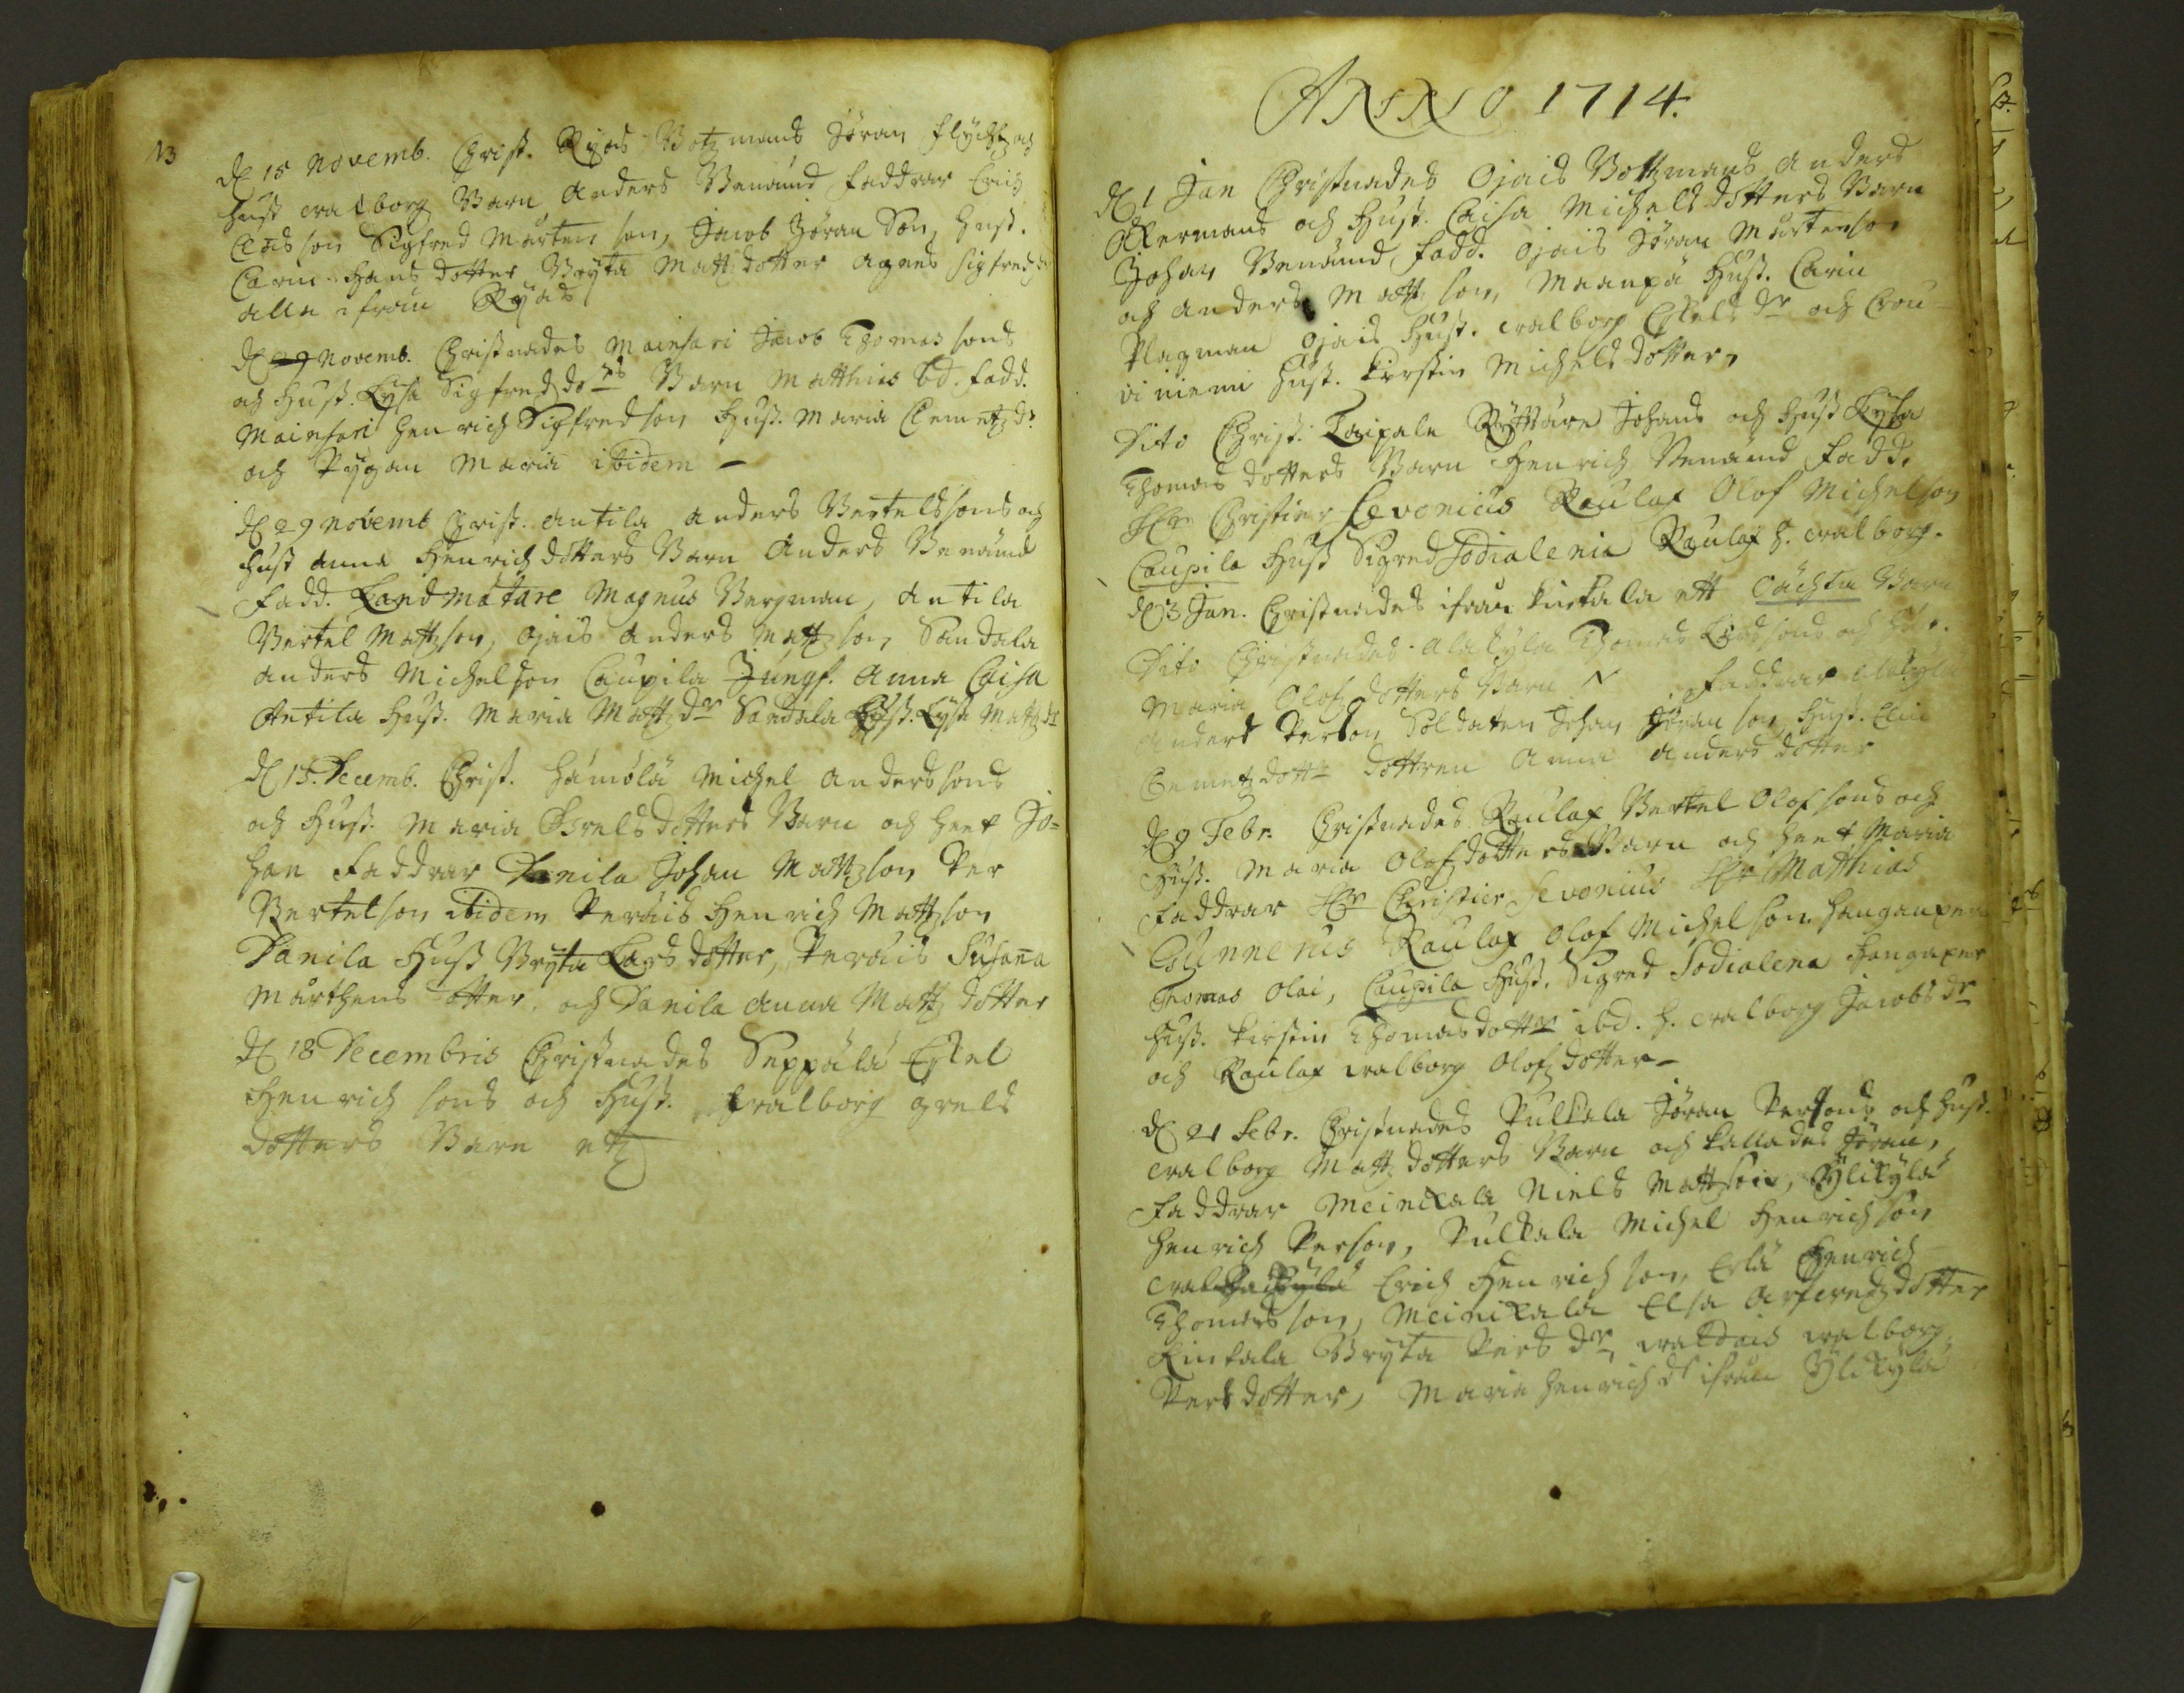 13
d 15 Novemb. Christ. Ryäs Botzmans Jöran flycktz och
hust walborg Barn Anders Benämnd faddrar Erich
Classon Sigfred Mårtenson, Jacob Jöranson, hust.
Carin Hansdotter Bryta Mattzdotter Agnes Sigfredzd
alla ifrån Ryäs
d 29 Novemb. Christnades Mainsari Jacob Thomassons
och Hust. Lysa Sigfredzdotrs Barn Matthias bd. fadd.
Mainsari Henrich Sigfredson Hust. Maria Clemetzdr
och Pygan Maria ibidem
d 29 Novemb Christ. Antila Anders Bertelssons och
hust Anna Henrichdotters Barn Anders Benämnd
Fadd. Landmätare Magnus Bergman, Antila
Bertel Mattzson, Ojais Anders Mattzson, Sandala
Anders Michelson Caupila Jungf. Anna Caisa
Antila Hust. Maria Mattzdr Sandala Hust. Lysa Mattzdr
d 15. Decemb. Christ. Hämölä Michel Anderssons
och Hust. Maria Grelsdotters Barn och heet Jo=
han Faddrar Danila Johan Mattzson Per
Bertelson ibidem Peräis Henrich Mattzson
Danila Hust Bryta Larsdotter, Peräis Susanna
Mårthensdotter. och Danila Anna Mattzdotter
d 18 Decembris Christnades Seppälä Eskel
Henrichsons och Hust. walborg Grels
dotters Barn
ANNO 1714.
d 1 Jan Christnades Ojais Bottzmans Anders
Åkermans och Hust. Caisa Michelsdotters Barn
Johan Benämnd, fadd. Ojais Jöran Mårtenson
och Anders Mattzson, Maanpä Hust. Carin
Plagman Ojais Hust. walborg Eskelsdr och Crou-
viniemi Hust. Kirstin Michelsdotter,
Dito Christ. Laipala Ryttare Johans och Hust Lysa
Thomasdotters Barn Henrich Benämnd Fadd.
Hr Christier Levonius Raulax Olof Michelson
Caupila Hust Sigred Sodialenia Raulax H. walborg.
d 3 Jan. Christnades ifrån Kurkala ett oächta Barn
Dito Christnades Alakyla Thomas Larssons och Hust.
Maria Olofzdotters Barn N Faddrar Alakyla
Anders Person Soldaten Johan Jöranson Hust. Elin
Clemetzdottr dottren Anna Andersdotter
d 9 Febr. Christnades Raulax Bertel Olofsons och
Hust. Maria Olofzdotters Barn och heet Maria
Faddrar Hr Christier Levonius Hr Matthias
Gunnerus Raulax Olof Michelson. Hanganpere
Thomas Olai, Caupila Hust. Sigred Sodialena Hangaper
Hust. Kirstin Thomasdottr ibd. H. walborg Jacobsdr
och Raulax walborg Olofzdotter
d 21 Febr. Christnades Pulkala Jöran Persons och Hust.
walborg Mattzdotters Barn och kallades Jöran,
Faddrar Meinikala Niels Mattzson, Ylikylä
Henrich Person, Pulkala Michel Henrichson
Erich Henrichson, Erlä Henrich
Thomasson, Meinikala Elsa Arfwedzdotter
Rintala Bryta Persdr, waldais walborg
Persdotter, Maria Henrichdr ifrån Ylikylä